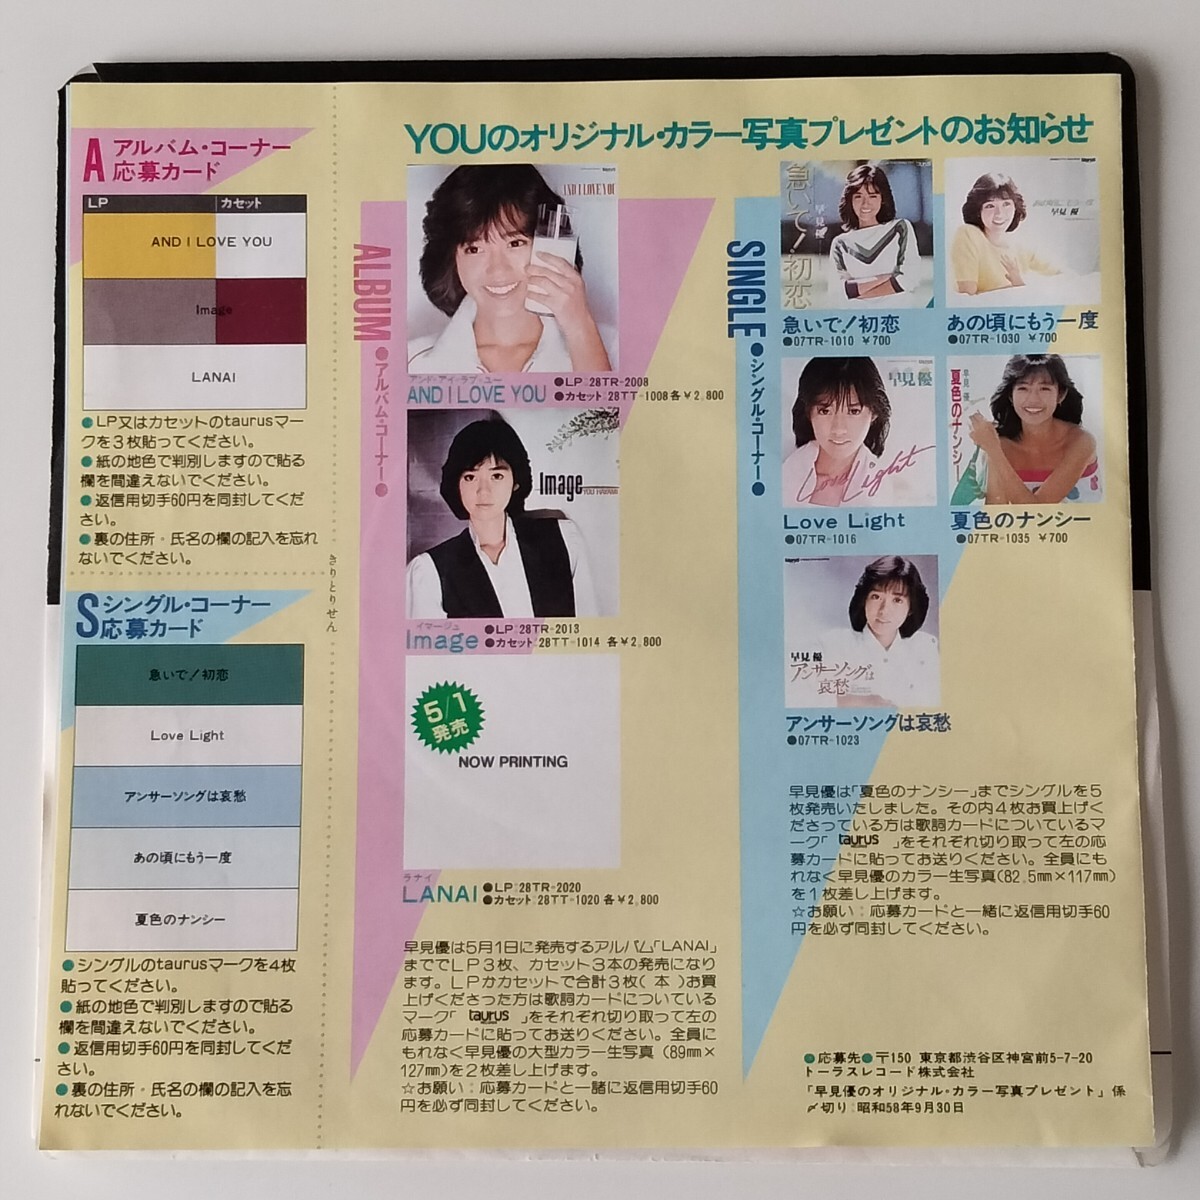 YOUのオリジナル・カラー写真プレゼントのお知らせ
A アルバム・コーナー
応募カード
LP カセット
AND I LOVE YOU
Image
LANAI
●LP又はカセットのtaurusマー
クを3枚貼ってください。
●紙の地色で判別しますので貼る
欄を間違えないでください。
●返信用切手60円を同封してくだ
さい。
●裏の住所・氏名の欄の記入を忘れ
ないでください。
きりとりせん
S シングル・コーナー
応募カード
急いで!初恋
Love Light
アンサーソングは哀愁
あの頃にもう一度
夏色のナンシー
●シングルのtaurusマークを4枚
貼ってください。
●紙の地色で判別しますので貼る
欄を間違えないでください。
●返信用切手60円を同封してくだ
さい。
●裏の住所・氏名の欄の記入を忘
れないでください。
ALBUM●アルバム・コーナー●
AND I LOVE YOU
アンド・アイ・ラブ・ユー
AND I LOVE YOU
●LP:28TR-2008
●カセット:28TT-1008各¥2,800
Image
YOU HAYAMI
イマージュ
Image
●LP:28TR-2013
●カセット:28TT-1014 各¥2,800
5/1
発売
NOW PRINTING
ラナイ
LANAI
●LP:28TR-2020
●カセット:28TT-1020 各¥2,800
早見優は5月1日に発売するアルバム「LANAI」
まででLP3枚、カセット3本の発売になり
ます。LPかカセットで合計3枚(本)お買
上げくださった方は歌詞カードについている
マーク「taurus」をそれぞれ切り取って左の
応募カードに貼ってお送りください。全員に
もれなく早見優の大型カラー生写真(89mm×
127mm)を2枚差し上げます。
☆お願い:応募カードと一緒に返信用切手60
円を必ず同封してください。
SINGLE●シングル・コーナー●
急いで!初恋
早見優
急いで!初恋
●07TR-1010 ¥700
あの頃にもう一度
早見 優
あの頃にもう一度
●07TR-1030 ¥700
早見 優
Love Light
Love Light
●07TR-1016
早見 優
夏色のナンシー
夏色のナンシー
●07TR-1035 ¥700
早見 優
アンサーソングは
哀愁
アンサーソングは哀愁
●07TR-1023
早見優は「夏色のナンシー」までシングルを5
枚発売いたしました。その内4枚お買上げく
ださっている方は歌詞カードについているマ
ーク「taurus」をそれぞれ切り取って左の応
募カードに貼ってお送りください。全員にも
れなく早見優のカラー生写真(82.5mm×117mm)
を1枚差し上げます。
☆お願い:応募カードと一緒に返信用切手60
円を必ず同封してください。
●応募先●〒150 東京都渋谷区神宮前5-7-20
トーラスレコード株式会社
「早見優のオリジナル・カラー写真プレゼント」係
〆切り:昭和58年9月30日